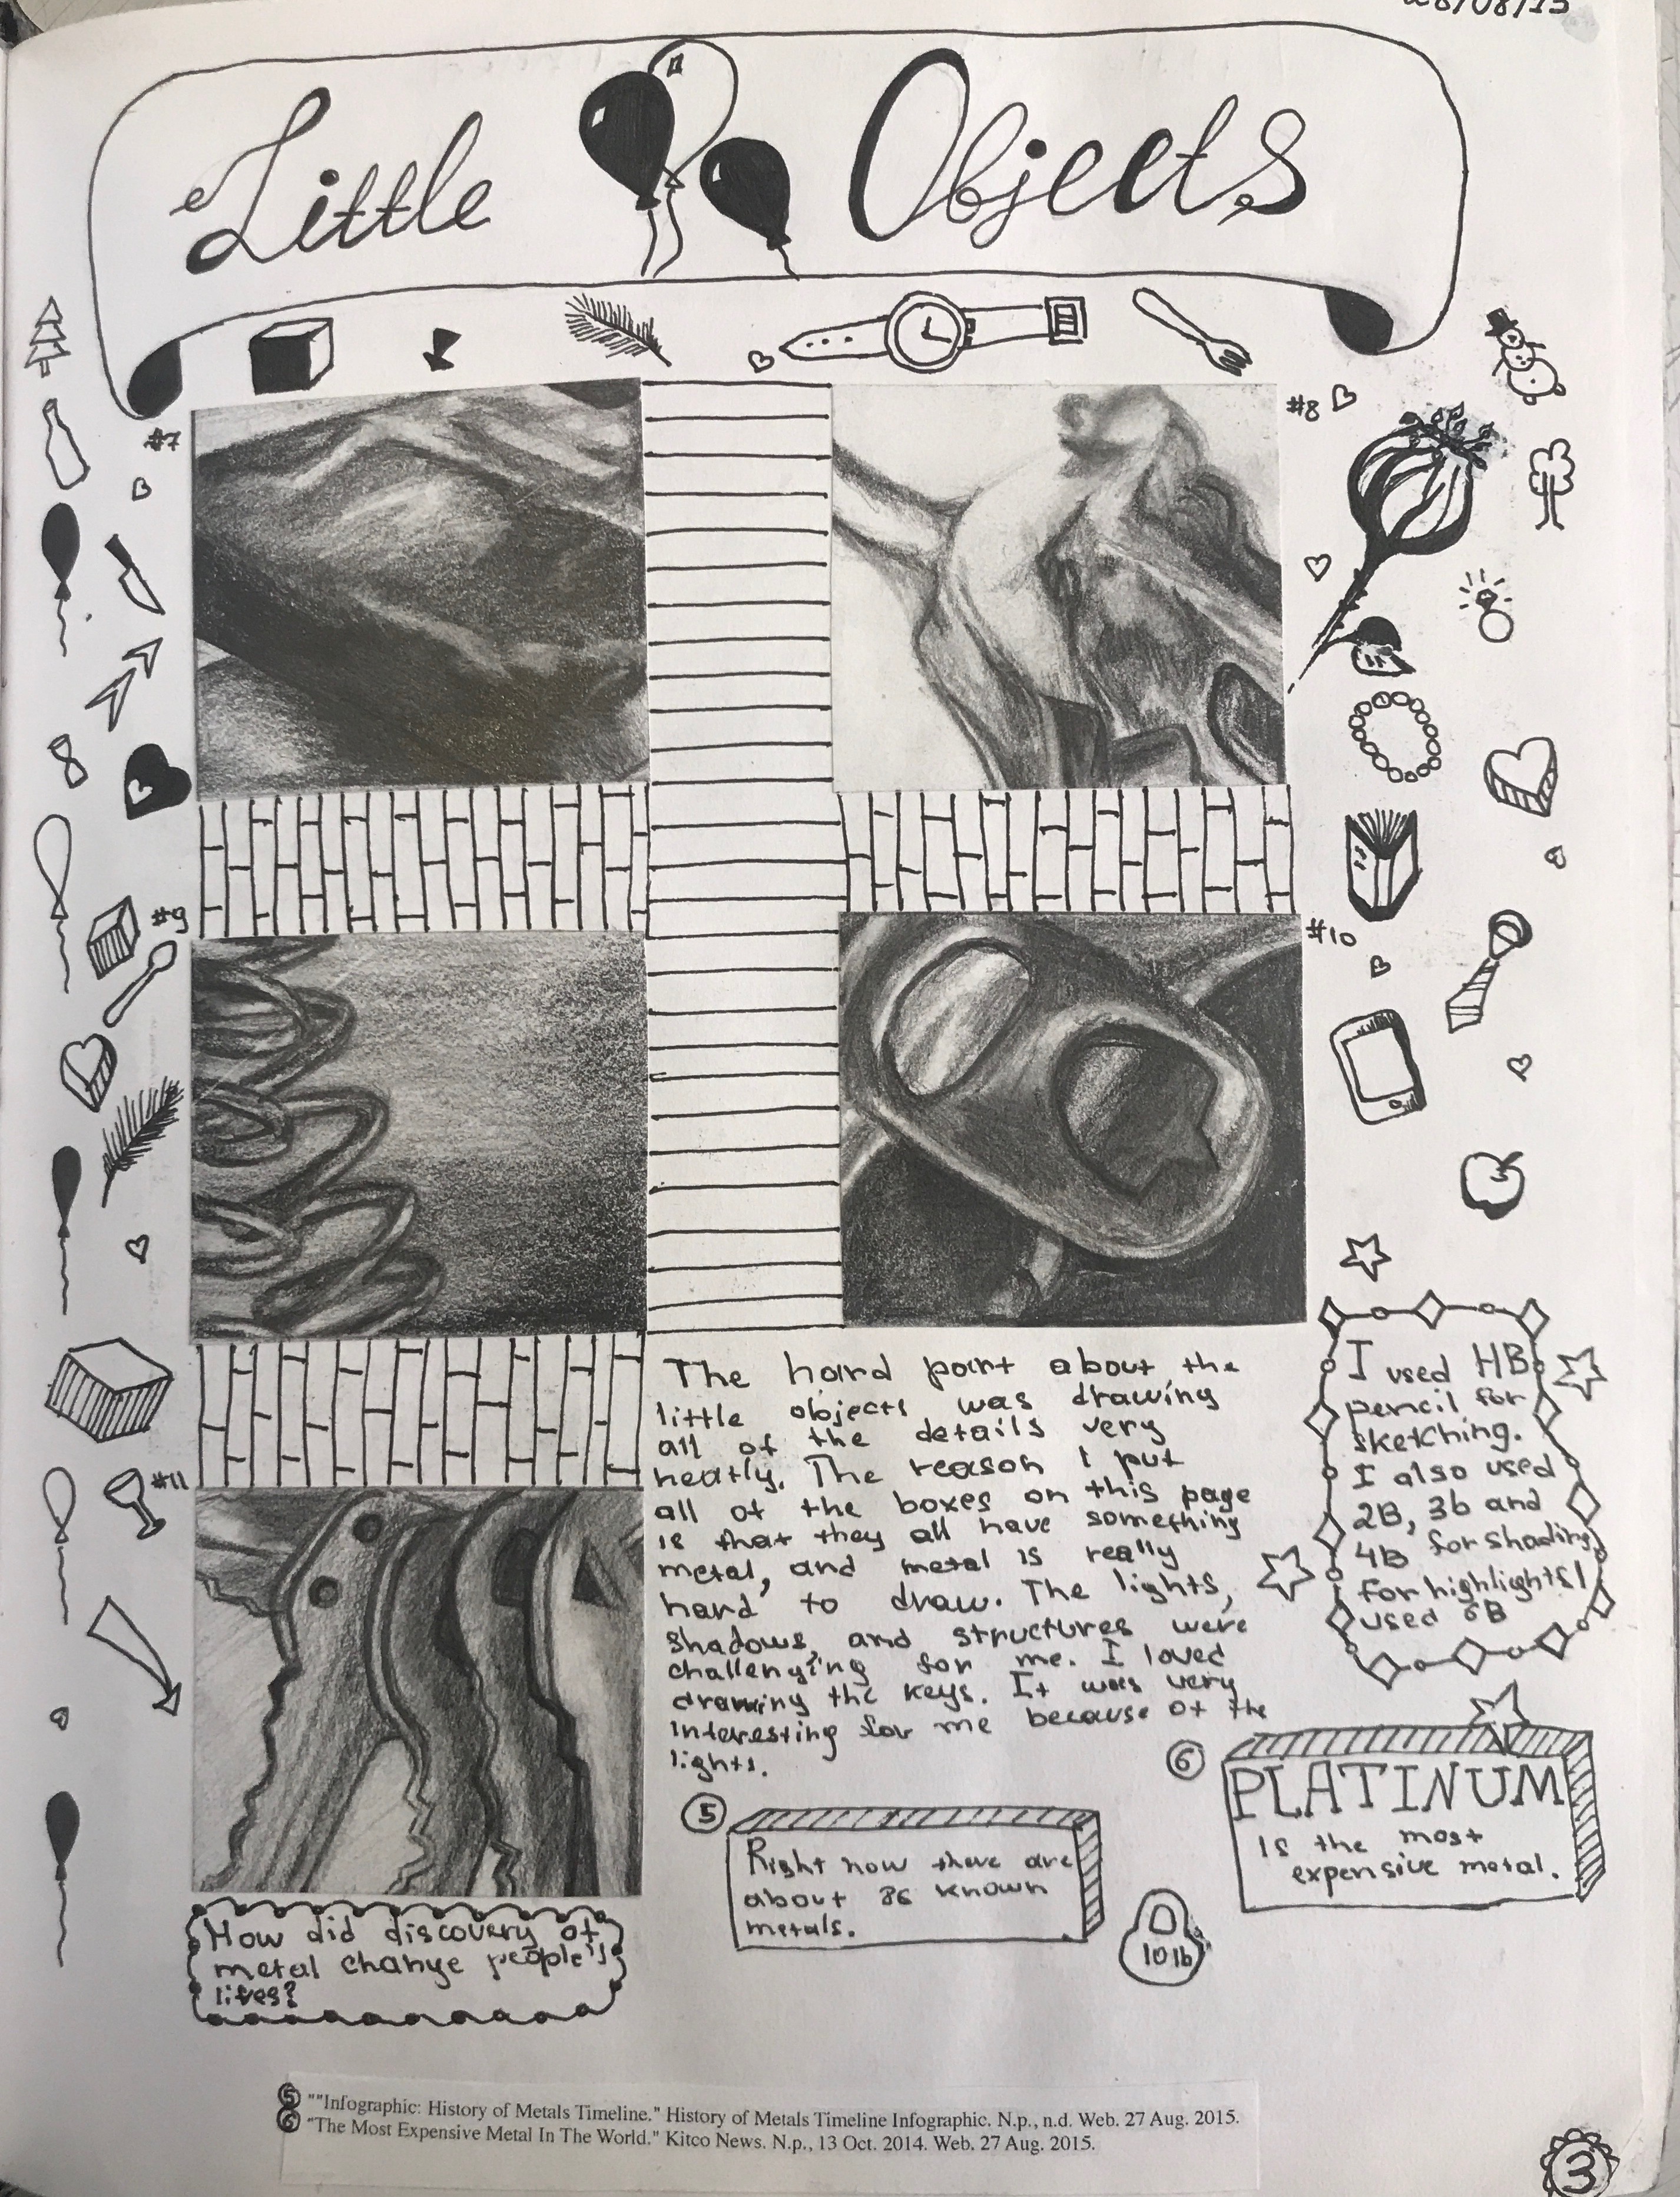 28/08/15
Little Objects
#7
#8
#9
#10
#11
The hard part about the
little objects was drawing
all of the details very
neatly. The reason I put
all of the boxes on this page
is that they all have something
metal, and metal is really
hard to draw. The lights,
shadows, and structures were
challenging for me. I loved
drawing the keys. It was very
interesting for me because of the
lights.
I used HB
pencil for
sketching.
I also used
2B, 3b and
4B for shading
for highlights I
used 6B
5
Right now there are
about 86 known
metals.
6
PLATINUM
is the most
expensive metal.
10 lb
How did discovery of
metal change people's
lifes?
5 ""Infographic: History of Metals Timeline." History of Metals Timeline Infographic. N.p., n.d. Web. 27 Aug. 2015.
6 "The Most Expensive Metal In The World." Kitco News. N.p., 13 Oct. 2014. Web. 27 Aug. 2015.
3